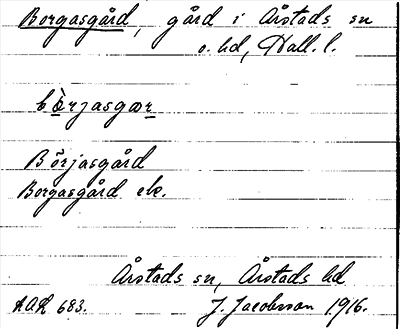 Borgasgård, gård i Årstads sn
o. hd, Hall. l.
bo̱̊̀rjasgær
Börjasgård
Borgasgård ek.
Årstads sn, Årstads hd
AOR 683. J. Jacobsson 1916.